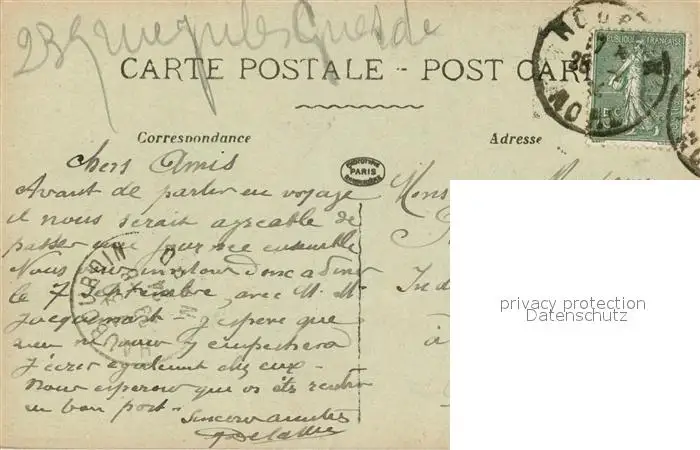 23 rue Jules Guesde
CARTE POSTALE - POST CAR
RÉPUBLIQUE FRANÇAISE
15c
Correspondance
Adresse
PARIS
Chers Amis
Avant de partir en voyage
il nous serait agréable de
passer une journée ensemble
Nous vous invitons donc a diner
le 7 Septembre, avec M. Me
Jacquemart - j'espere que
rien ne vous y empechera
J'écris également chez eux -
Nous esperons que vs êtes rentrés
en bon port -
Sinceres amitiés
Delattre
Mons
Ind
à
privacy protection
Datenschutz